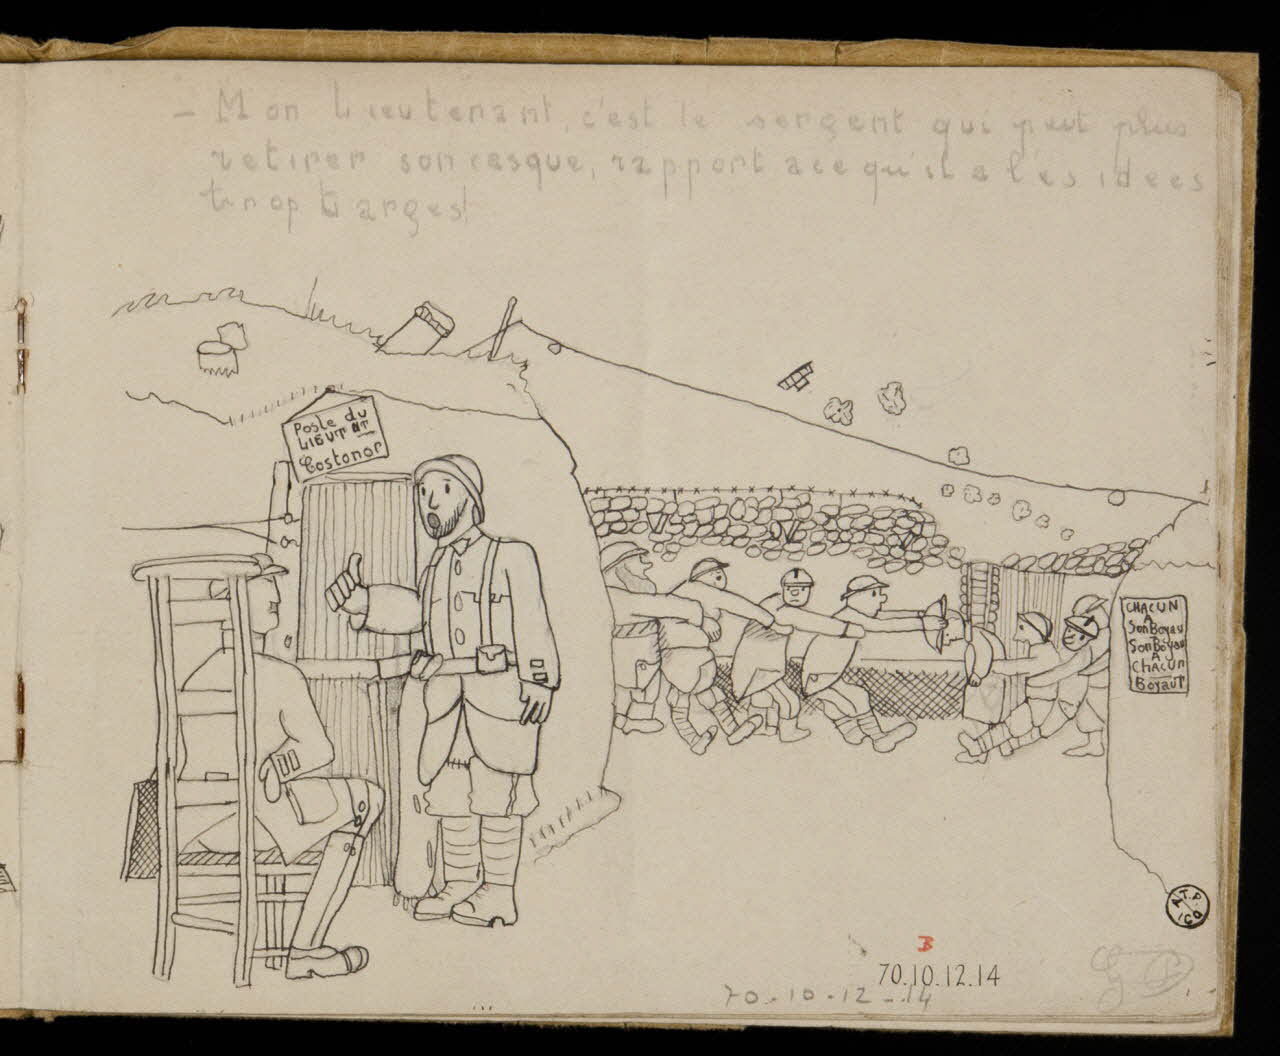 - Mon Lieutenant, c'est le sergent qui peut plus
retirer son casque, rapport a ce qu'il a les idées
trop Larges!
Poste du
LIEUT NT
Costonor
CHACUN
A
Son Boyau
Son Boyau
A
CHACUN
Boyaut
A.T.P.
ICO
B
70.10.12.14
70-10-12-14